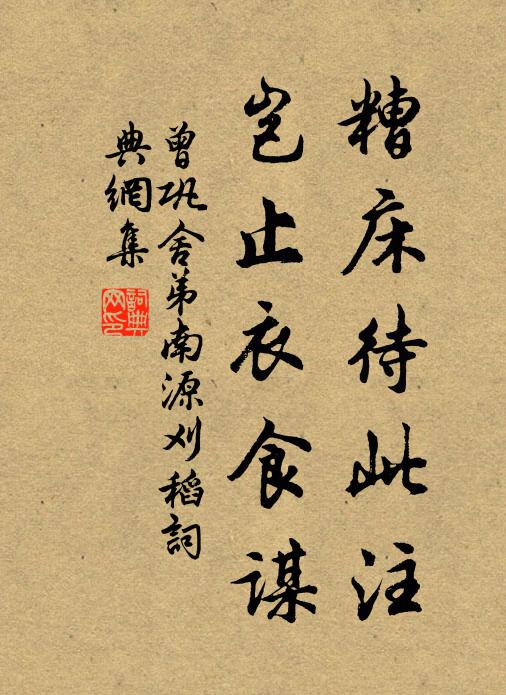 糟床待此注
岂止衣食谋
曾巩舍弟南源刈稻詞
典網集
詞典网印